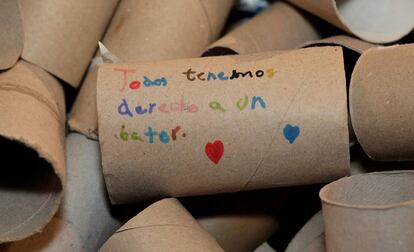 Todos tenemos
derecho a un
bator.